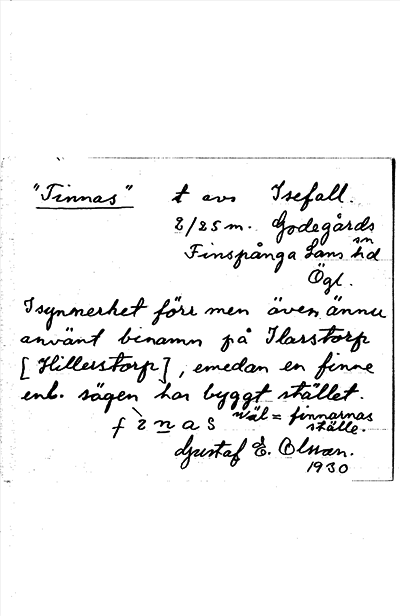 "Finnas" t avs Isefall.
2/25 m. Godegårds
sn
Finspånga läns hd
Ögl.
Isynnerhet förr men även ännu
använt binamn på Ilarstorp
[Hillerstorp], emedan en finne
enl. sägen har byggt stället.
fìnas väl = finnarnas
ställe.
Gustaf E. Olsson.
1930